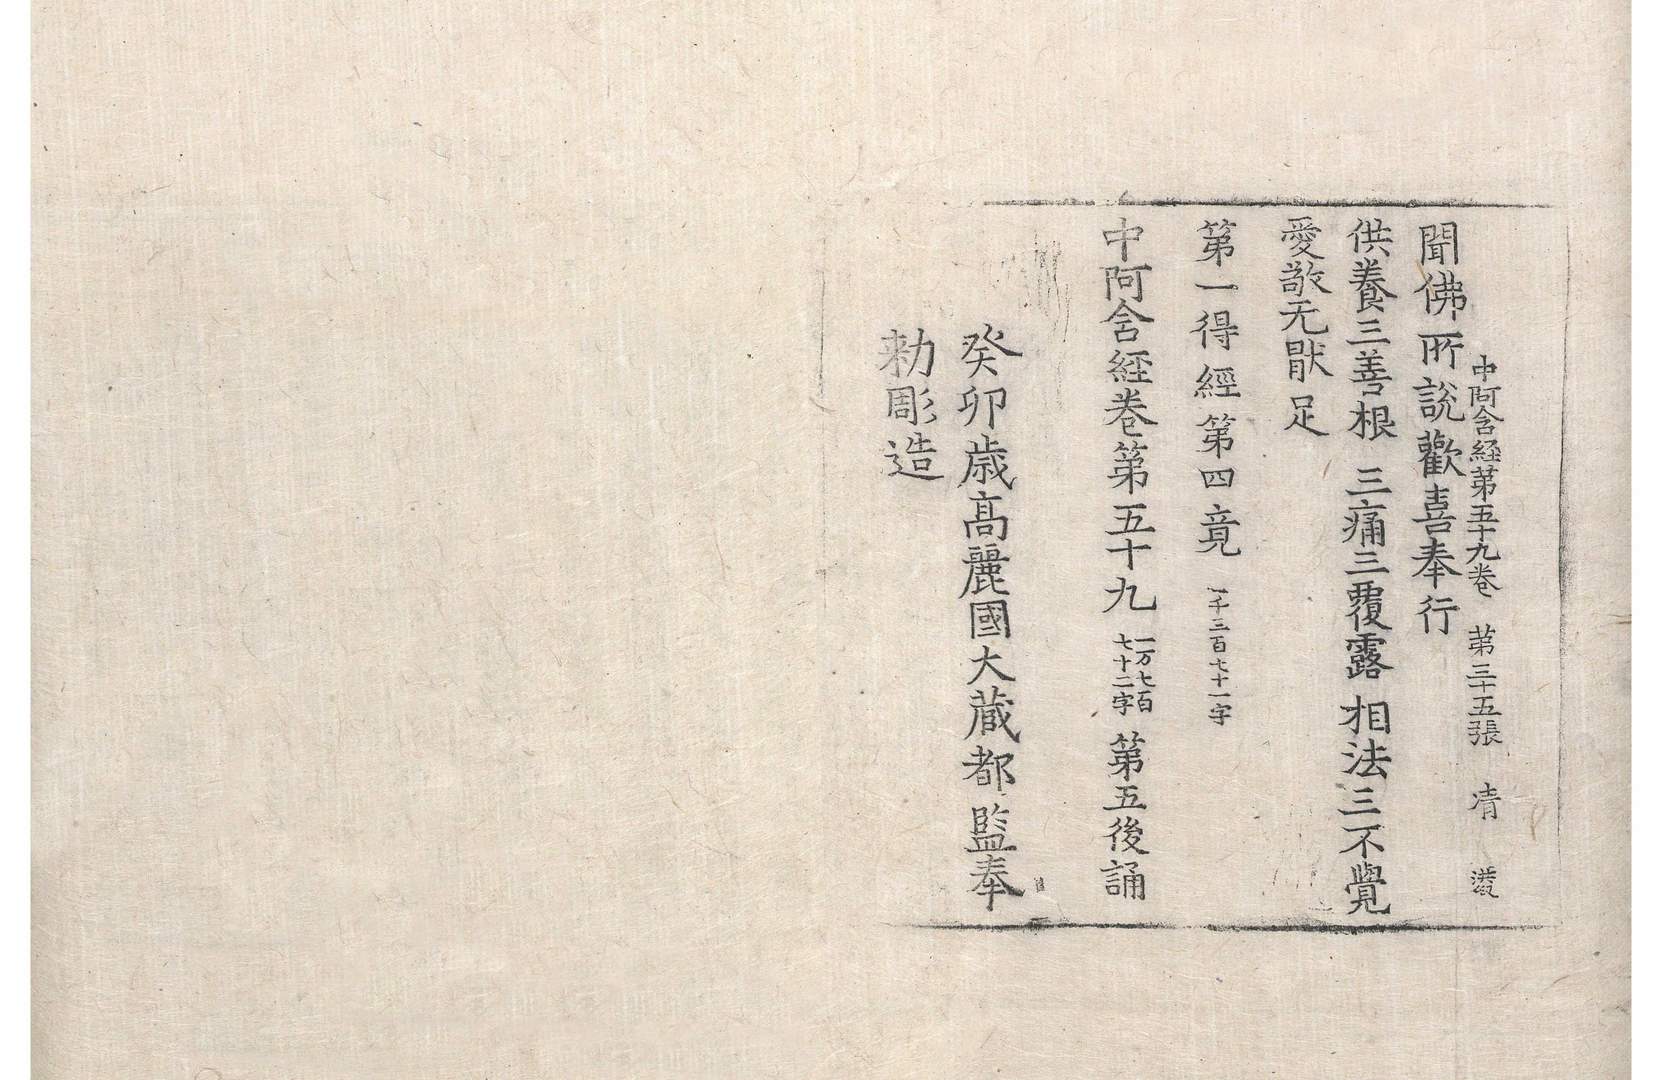 中阿含経第五十九卷 第三十五張 凊
聞佛所說歡喜奉行
供養三善根 三痛三覆露 相法三不覺
愛敬无猒足
第一得經第四竟 一千三百七十一字
中阿含経卷第五十九 一万七百七十二字 第五後誦
癸卯歳高麗國大藏都監奉
勑彫造